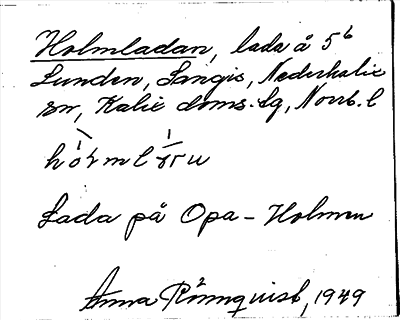 Holmladan, lada å 5⁶
Lunden, Sangis, Nederkalix
sn, Kalix doms.-lg, Norrb. l
Lada på Opa-Holmen
Anna Rönnquist, 1949